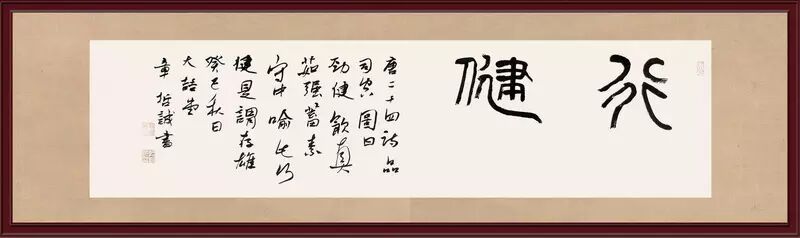 行健
唐二十四詩品
司空圖曰
勁健飲真
茹強蓄素
守中喻行
健是謂存雄
癸巳秋日
大喆堂
章誠書